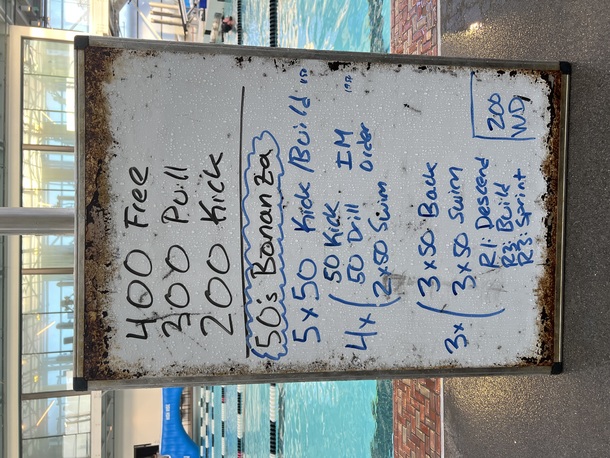 400 Free
300 Pull
200 Kick
50's Bonanza
5 x 50 Kick/Build
4x ( 50 Kick IM
50 Drill order
2 x 50 Swim
3x ( 3 x 50 Back
3 x 50 Swim
R1: Descend
R2: Build
R3: Sprint
200
WD